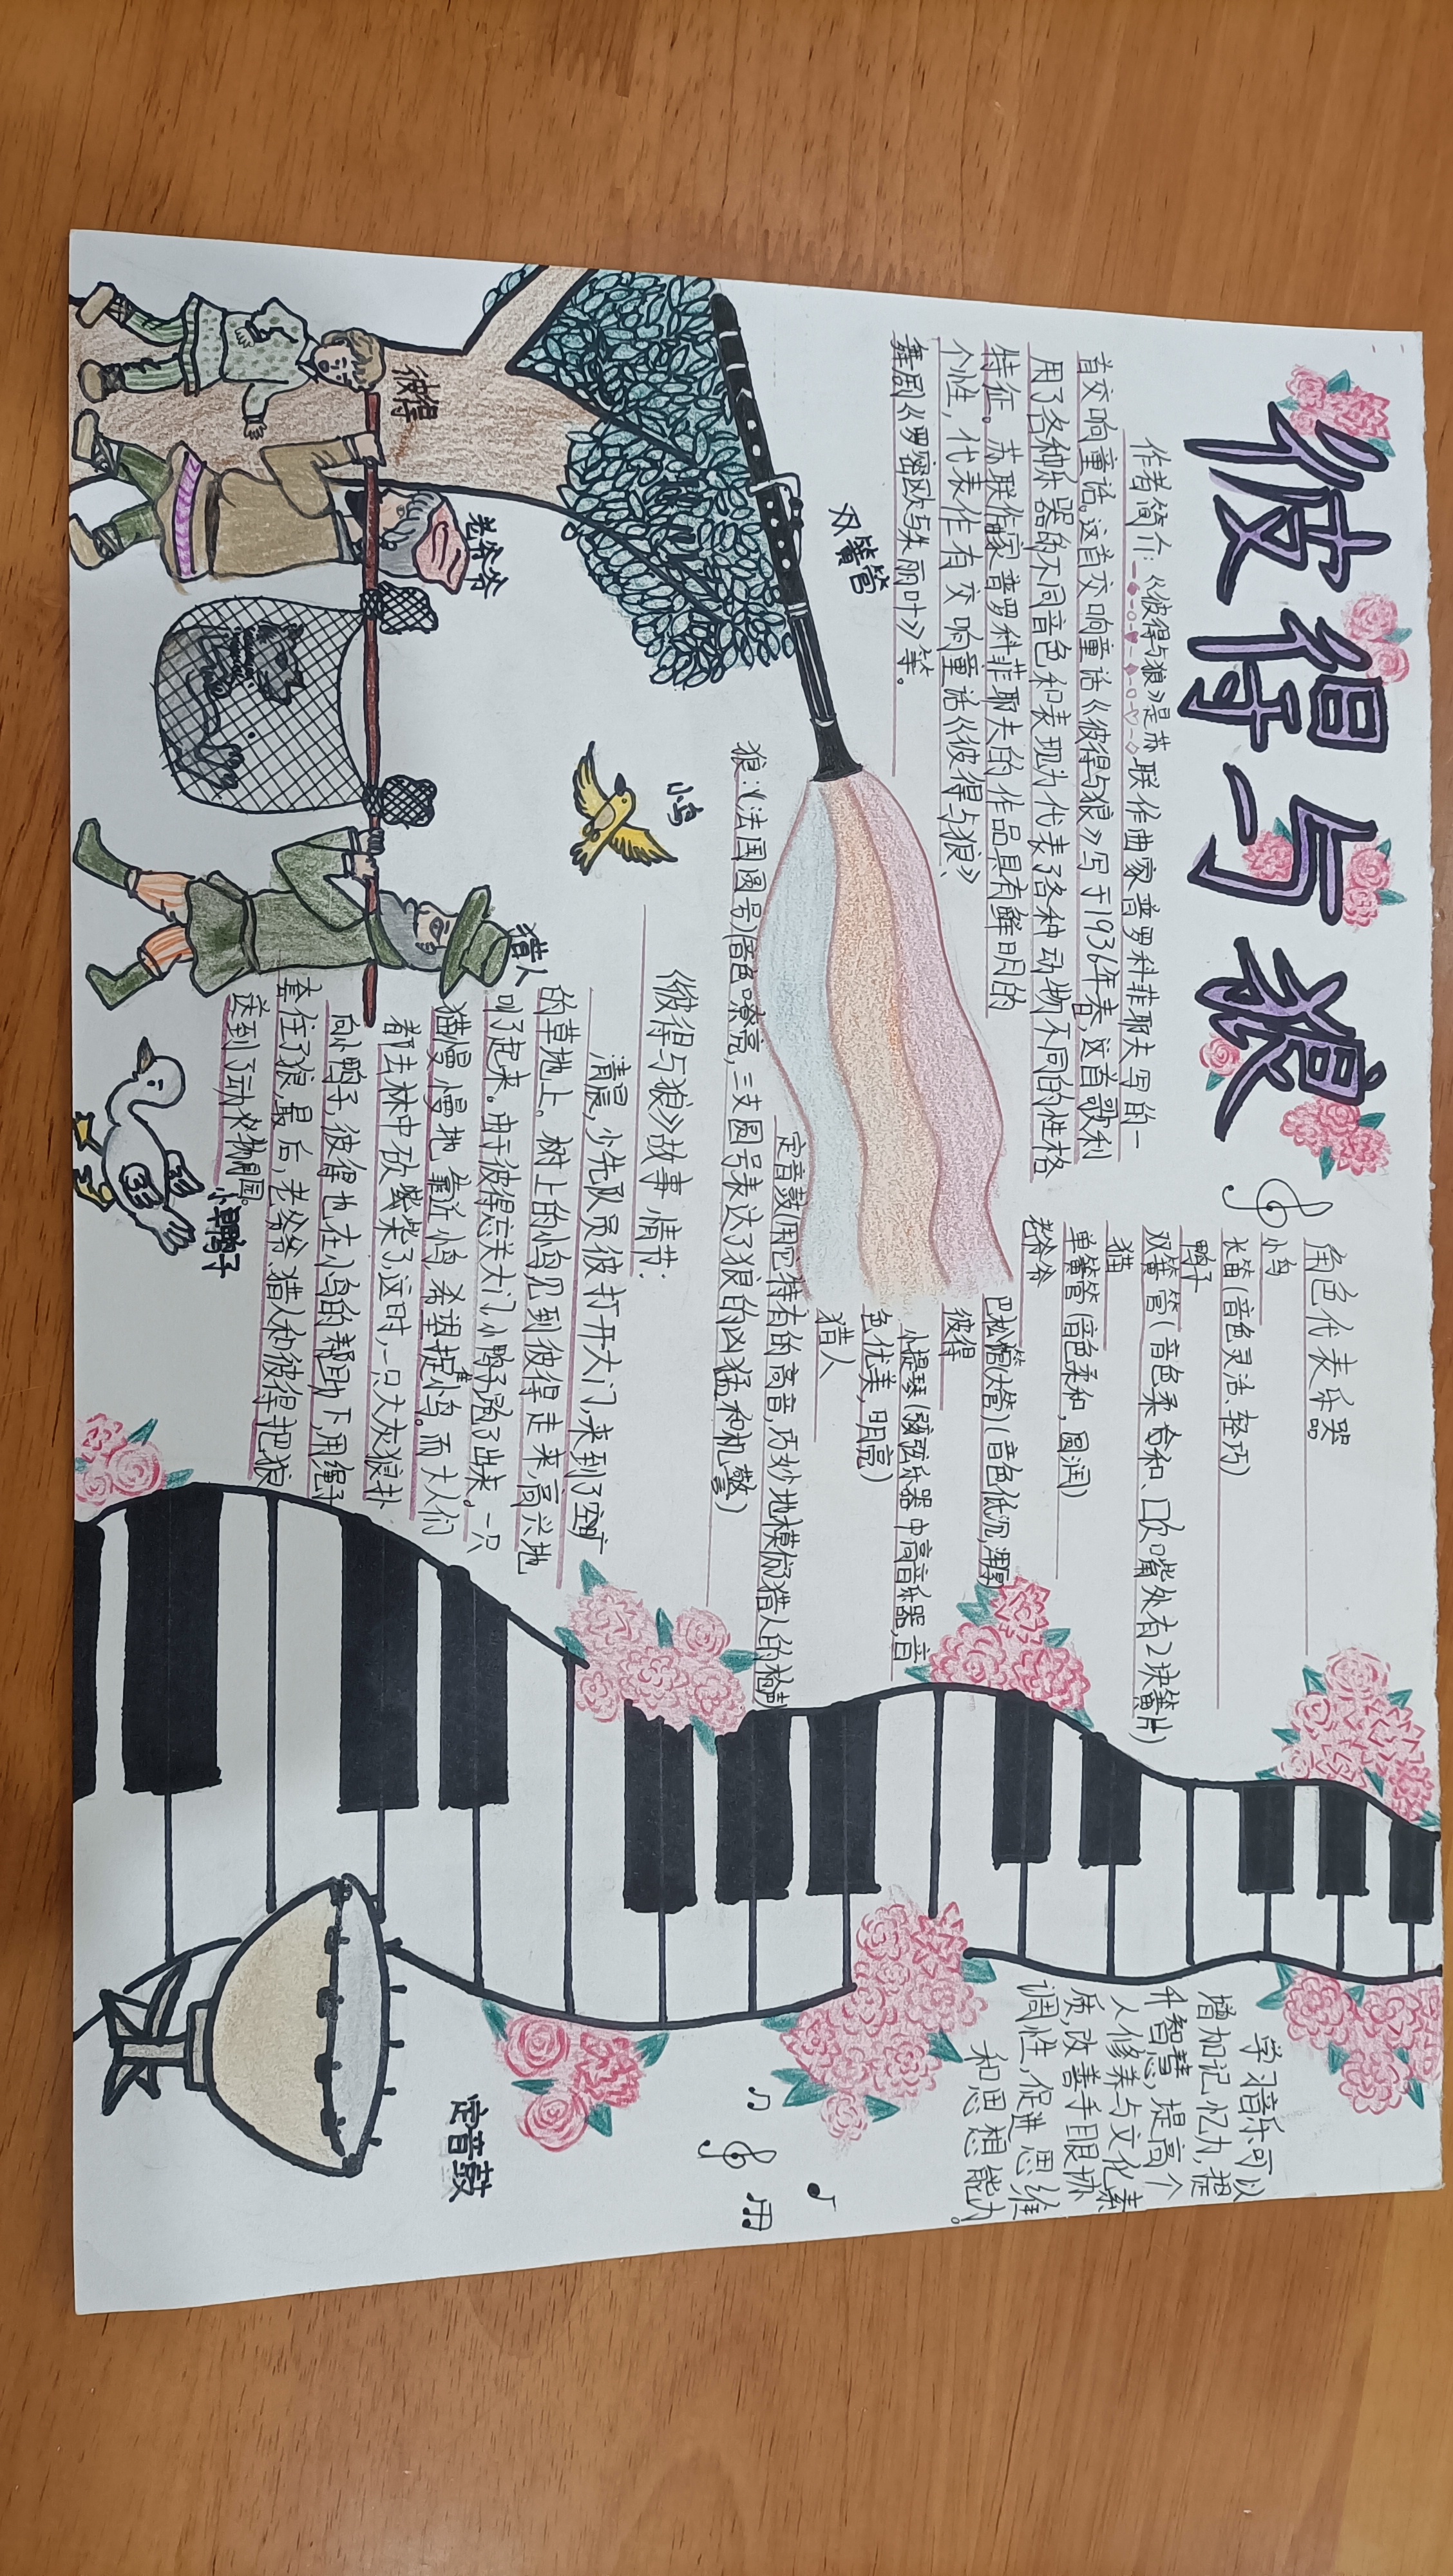 彼得与狼
作者简介：《彼得与狼》是苏联作曲家普罗科菲耶夫写的一
首交响童话。这首交响童话《彼得与狼》写于1936年春，这首歌利
用了各种乐器的不同音色和表现力代表了各种动物不同的性格
特征。苏联作家普罗科菲耶夫的作品具有鲜明的
个性，代表作有交响童话《彼得与狼》、
舞剧《罗密欧与朱丽叶》等。
双簧管
角色代表乐器
小鸟
长笛(音色灵活、轻巧)
鸭子
双簧管(音色柔和、口吹嘴处有2块簧片)
猫
单簧管(音色柔和，圆润)
老爷爷
巴松管(大管)(音色低沉，浑厚)
彼得
小提琴(弦乐器中高音乐器，音
色优美，明亮)
猎人
定音鼓(用它特有的高音，巧妙地模仿猎人的枪声)
狼：(法国圆号)(音色嘹亮，三支圆号表达了狼的凶猛和机警)
《彼得与狼》故事情节：
清晨，少先队员彼打开大门，来到了空旷
的草地上。树上的小鸟见到彼得走来，高兴地
叫了起来。由于彼得忘关大门，小鸭子溜了出来。一只
猫慢慢地靠近小鸟，希望捉小鸟。而大人们
都去林中砍柴了，这时，一只大灰狼扑
向小鸭子，彼得也在小鸟的帮助下，用绳子
套住了狼，最后，老爷爷、猎人和彼得把狼
送到了动物园。
彼得
老爷爷
小鸟
猎人
小鸭子
学习音乐可以
增加记忆力，提
升智慧，提高个
人修养与文化素
质，改善手眼协
调性，促进思维
和思想能力。
定音鼓